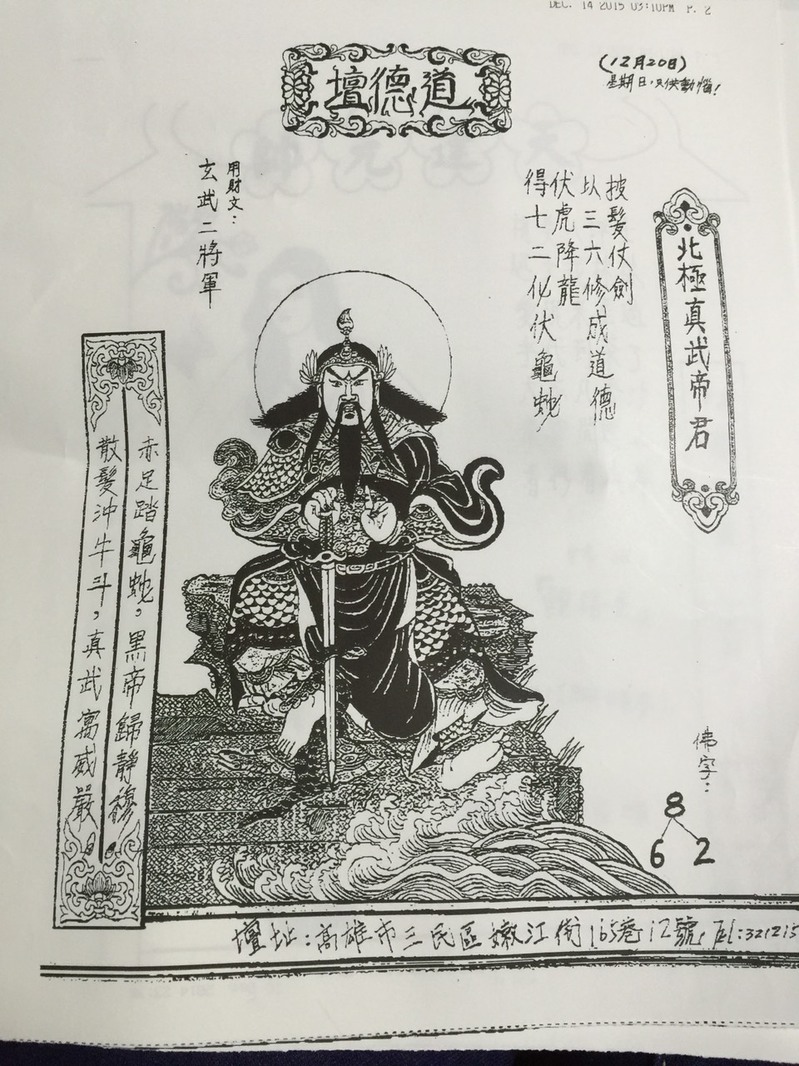 DEC. 14 2015 03:10PM P. 2
道德壇
(12月20日)
星期日，只供動惱!
北極真武帝君
披髮仗劍
以三六修成道德
伏虎降龍
得七二化伏龜蛇
用財文：
玄武二將軍
赤足踏龜蛇，黑帝歸靜穆
散髮沖牛斗，真武寓威嚴
佛字：
8
6 2
壇址：高雄市三民區嫩江街165巷12號，Tel:321215